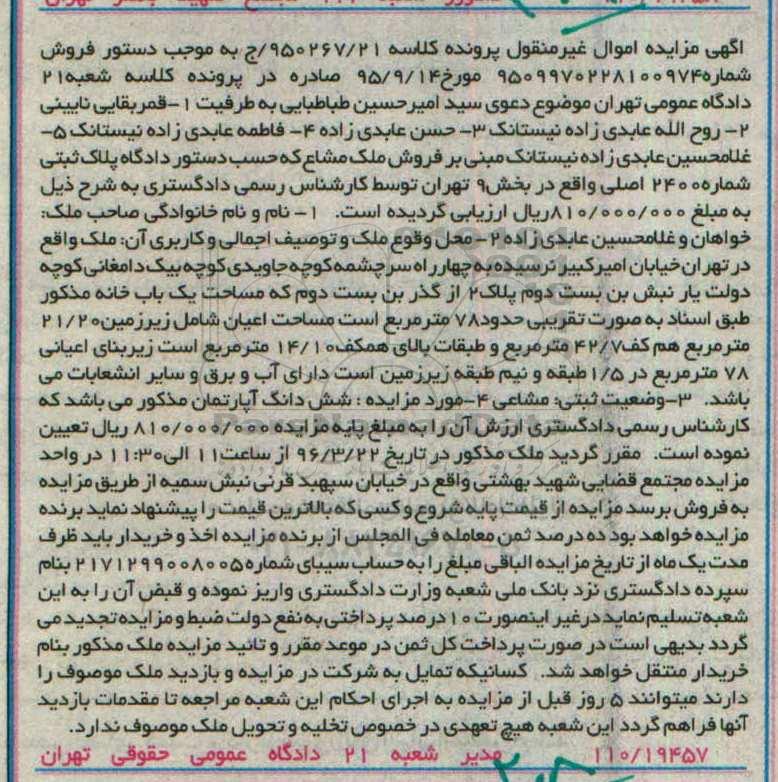 آگهی مزایده اموال غیرمنقول پرونده کلاسه ۹۵۰۲۶۷/۲۱/ج به موجب دستور فروش
شماره۹۵۰۹۹۷۰۲۲۸۱۰۰۹۷۴ مورخ۹۵/۹/۱۴ صادره در پرونده کلاسه شعبه۲۱
دادگاه عمومی تهران موضوع دعوی سید امیرحسین طباطبایی به طرفیت ۱-قمربقایی نایینی
۲- روح الله عابدی زاده نیستانک ۳- حسن عابدی زاده ۴- فاطمه عابدی زاده نیستانک ۵-
غلامحسین عابدی زاده نیستانک مبنی بر فروش ملک مشاع که حسب دستور دادگاه پلاک ثبتی
شماره۲۴۰۰ اصلی واقع در بخش۹ تهران توسط کارشناس رسمی دادگستری به شرح ذیل
به مبلغ ۸۱۰/۰۰۰/۰۰۰ریال ارزیابی گردیده است. ۱- نام و نام خانوادگی صاحب ملک:
خواهان و غلامحسین عابدی زاده ۲- محل وقوع ملک و توصیف اجمالی و کاربری آن: ملک واقع
در تهران خیابان امیرکبیر نرسیده به چهارراه سرچشمه کوچه جاویدی کوچه بیک دامغانی کوچه
دولت یار نبش بن بست دوم پلاک۲ از گذر بن بست دوم که مساحت یک باب خانه مذکور
طبق اسناد به صورت تقریبی حدود۷۸ مترمربع است مساحت اعیان شامل زیرزمین۲۱/۲۰
مترمربع هم کف۴۲/۷ مترمربع و طبقات بالای همکف۱۴/۱۰ مترمربع است زیربنای اعیانی
۷۸ مترمربع در ۱/۵ طبقه و نیم طبقه زیرزمین است دارای آب و برق و سایر انشعابات می
باشد. ۳-وضعیت ثبتی: مشاعی ۴-مورد مزایده : شش دانگ آپارتمان مذکور می باشد که
کارشناس رسمی دادگستری ارزش آن را به مبلغ پایه مزایده ۸۱۰/۰۰۰/۰۰۰ ریال تعیین
نموده است. مقرر گردید ملک مذکور در تاریخ ۹۶/۳/۲۲ از ساعت۱۱ الی۱۱:۳۰ در واحد
مزایده مجتمع قضایی شهید بهشتی واقع در خیابان سپهبد قرنی نبش سمیه از طریق مزایده
به فروش برسد مزایده از قیمت پایه شروع و کسی که بالاترین قیمت را پیشنهاد نماید برنده
مزایده خواهد بود ده درصد ثمن معامله فی المجلس از برنده مزایده اخذ و خریدار باید ظرف
مدت یک ماه از تاریخ مزایده الباقی مبلغ را به حساب سیبای شماره۲۱۷۱۲۹۹۰۰۸۰۰۵ بنام
سپرده دادگستری نزد بانک ملی شعبه وزارت دادگستری واریز نموده و قبض آن را به این
شعبه تسلیم نماید درغیر اینصورت ۱۰درصد پرداختی به نفع دولت ضبط و مزایده تجدید می
گردد بدیهی است در صورت پرداخت کل ثمن در موعد مقرر و تائید مزایده ملک مذکور بنام
خریدار منتقل خواهد شد. کسانیکه تمایل به شرکت در مزایده و بازدید ملک موصوف را
دارند میتوانند ۵ روز قبل از مزایده به اجرای احکام این شعبه مراجعه تا مقدمات بازدید
آنها فراهم گردد این شعبه هیچ تعهدی در خصوص تخلیه و تحویل ملک موصوف ندارد.
۱۱۰/۱۹۴۵۷ مدیر شعبه ۲۱ دادگاه عمومی حقوقی تهران